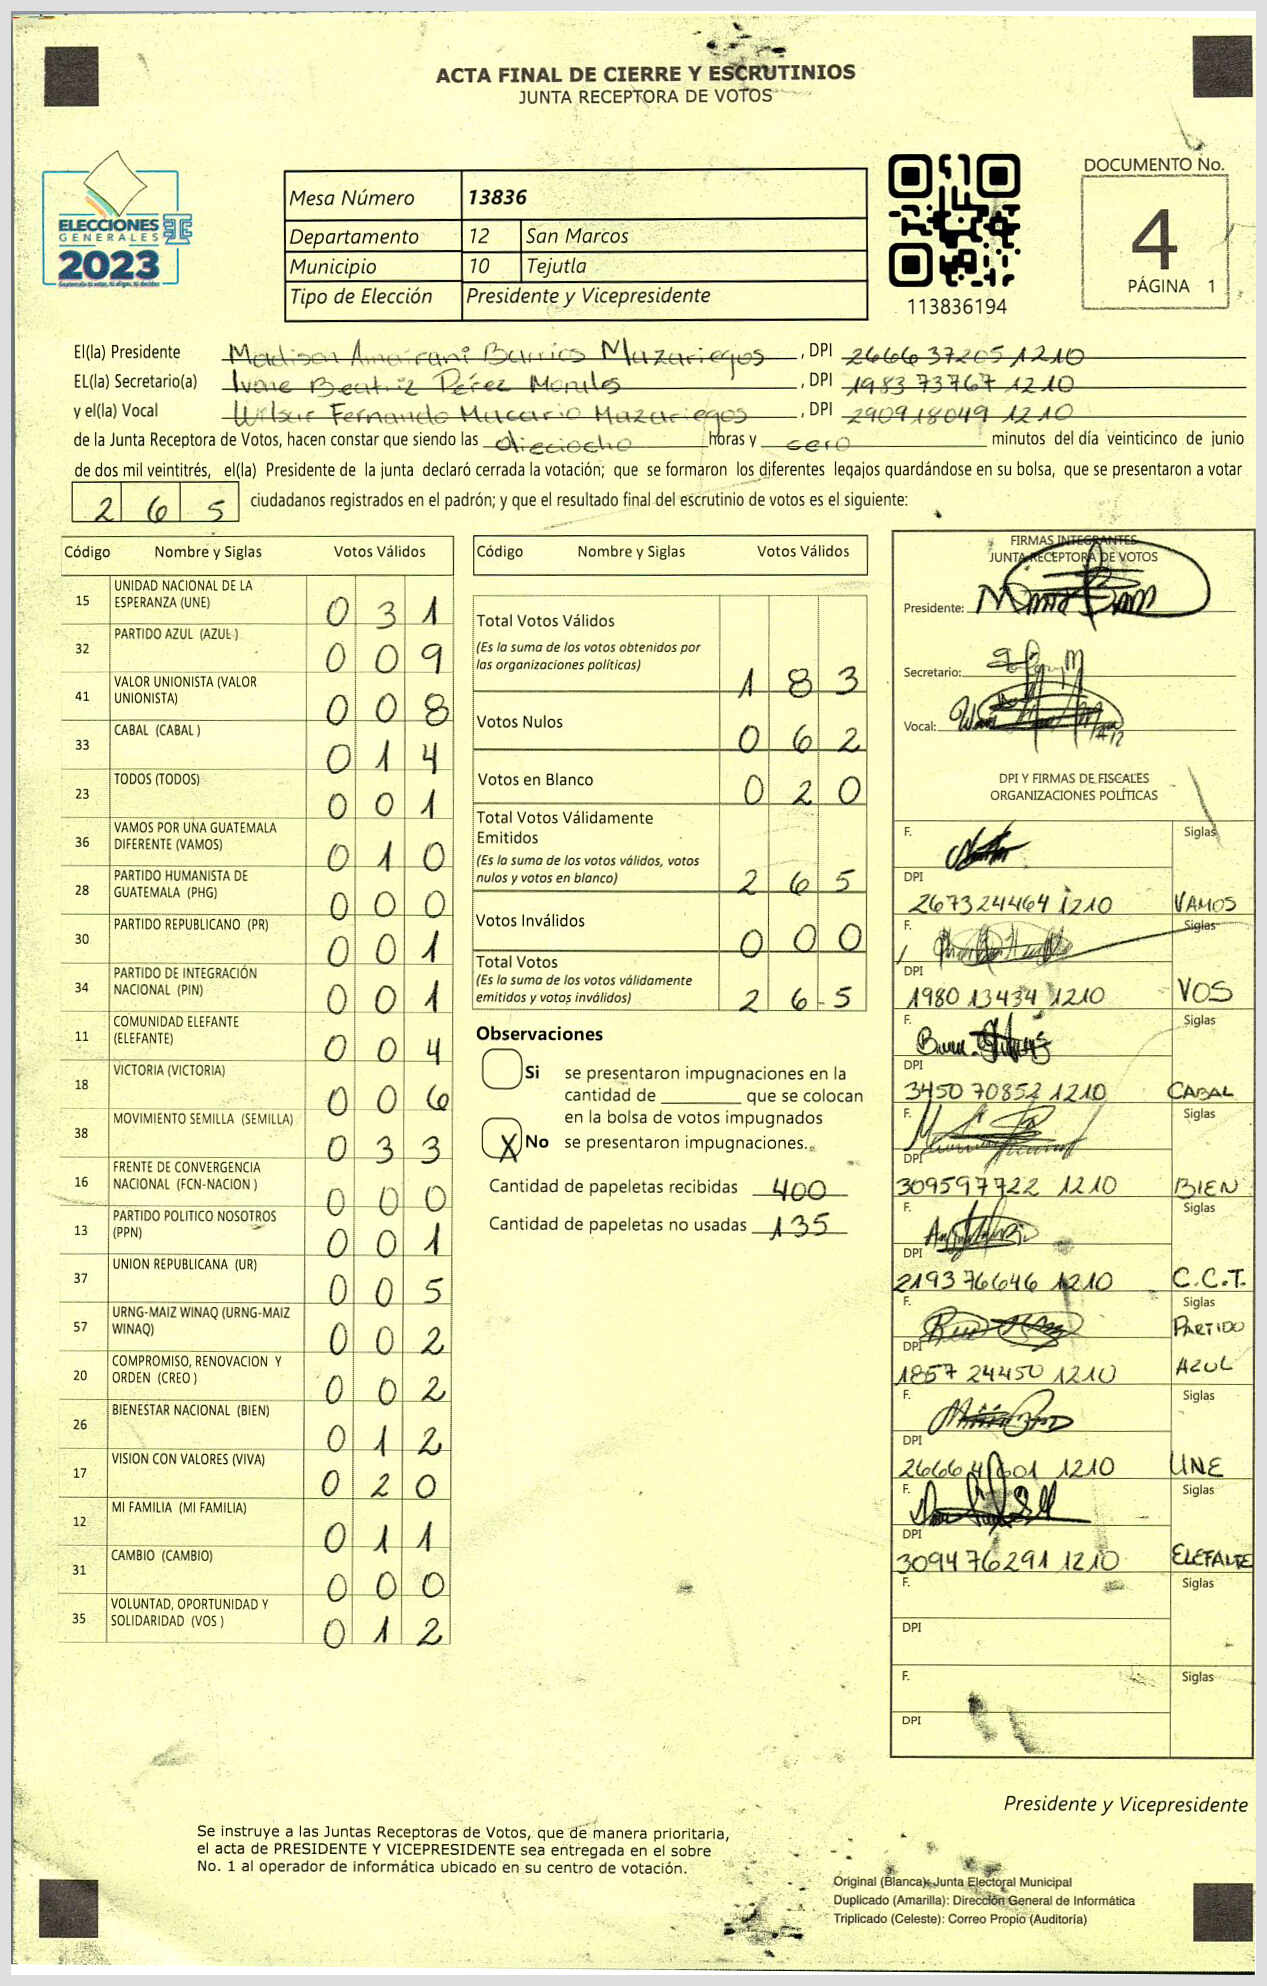 ACTA FINAL DE CIERRE Y ESCRUTINIOS
JUNTA RECEPTORA DE VOTOS
ELECCIONES
GENERALES
2023
Mesa Número 13836
Departamento 12 San Marcos
Municipio 10 Tejutla
Tipo de Elección Presidente y Vicepresidente
113836194
DOCUMENTO No.
4
PÁGINA 1
El(la) Presidente Madison Amairani Barrios Mazariegos , DPI 2666 37205 1210
EL(la) Secretario(a) Ivone Beatriz Pérez Morales , DPI 1983 73767 1210
y el(la) Vocal Wilsur Fernando Macario Mazariegos , DPI 2909 18049 1210
de la Junta Receptora de Votos, hacen constar que siendo las dieciocho horas y cero minutos del día veinticinco de junio
de dos mil veintitrés, el(la) Presidente de la junta declaró cerrada la votación; que se formaron los diferentes legajos quardándose en su bolsa, que se presentaron a votar
2 6 5 ciudadanos registrados en el padrón; y que el resultado final del escrutinio de votos es el siguiente:
Código Nombre y Siglas Votos Válidos
15 UNIDAD NACIONAL DE LA ESPERANZA (UNE) 0 3 1
32 PARTIDO AZUL (AZUL ) 0 0 9
41 VALOR UNIONISTA (VALOR UNIONISTA) 0 0 8
33 CABAL (CABAL ) 0 1 4
23 TODOS (TODOS) 0 0 1
36 VAMOS POR UNA GUATEMALA DIFERENTE (VAMOS) 0 1 0
28 PARTIDO HUMANISTA DE GUATEMALA (PHG) 0 0 0
30 PARTIDO REPUBLICANO (PR) 0 0 1
34 PARTIDO DE INTEGRACIÓN NACIONAL (PIN) 0 0 1
11 COMUNIDAD ELEFANTE (ELEFANTE) 0 0 4
18 VICTORIA (VICTORIA) 0 0 6
38 MOVIMIENTO SEMILLA (SEMILLA) 0 3 3
16 FRENTE DE CONVERGENCIA NACIONAL (FCN-NACION ) 0 0 0
13 PARTIDO POLITICO NOSOTROS (PPN) 0 0 1
37 UNION REPUBLICANA (UR) 0 0 5
57 URNG-MAIZ WINAQ (URNG-MAIZ WINAQ) 0 0 2
20 COMPROMISO, RENOVACION Y ORDEN (CREO ) 0 0 2
26 BIENESTAR NACIONAL (BIEN) 0 1 2
17 VISION CON VALORES (VIVA) 0 2 0
12 MI FAMILIA (MI FAMILIA) 0 1 1
31 CAMBIO (CAMBIO) 0 0 0
35 VOLUNTAD, OPORTUNIDAD Y SOLIDARIDAD (VOS ) 0 1 2
Código Nombre y Siglas Votos Válidos
Total Votos Válidos
(Es la suma de los votos obtenidos por
las organizaciones políticas) 1 8 3
Votos Nulos 0 6 2
Votos en Blanco 0 2 0
Total Votos Válidamente
Emitidos
(Es la suma de los votos válidos, votos
nulos y votos en blanco) 2 6 5
Votos Inválidos 0 0 0
Total Votos
(Es la suma de los votos válidamente
emitidos y votos inválidos) 2 6 5
Observaciones
Si se presentaron impugnaciones en la
cantidad de ________ que se colocan
en la bolsa de votos impugnados
X No se presentaron impugnaciones.
Cantidad de papeletas recibidas 400
Cantidad de papeletas no usadas 135
FIRMAS INTEGRANTES
JUNTA RECEPTORA DE VOTOS
Presidente:
Secretario:
Vocal:
DPI Y FIRMAS DE FISCALES
ORGANIZACIONES POLÍTICAS
F. Siglas
DPI
2673 24464 1210 VAMOS
F. Siglas
DPI
1980 13434 1210 VOS
F. Siglas
DPI
3450 70852 1210 CABAL
F. Siglas
DPI
3095 97722 1210 BIEN
F. Siglas
DPI
2193 76646 1210 C.C.T.
F. Siglas
PARTIDO
DPI
1857 24450 1210 AZUL
F. Siglas
DPI
1210 UNE
F. Siglas
DPI
3094 76291 1210 ELEFALTE
F. Siglas
DPI
F. Siglas
DPI
Presidente y Vicepresidente
Se instruye a las Juntas Receptoras de Votos, que de manera prioritaria,
el acta de PRESIDENTE Y VICEPRESIDENTE sea entregada en el sobre
No. 1 al operador de informática ubicado en su centro de votación.
Original (Blanca): Junta Electoral Municipal
Duplicado (Amarilla): Dirección General de Informática
Triplicado (Celeste): Correo Propio (Auditoría)